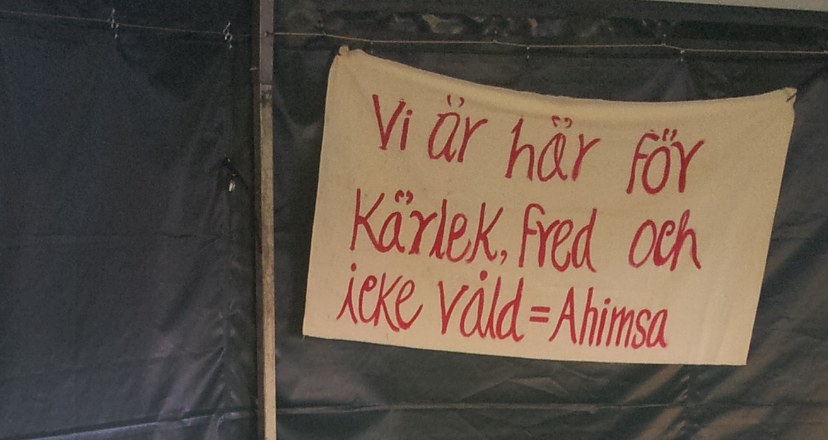 Vi är här för
Kärlek, Fred och
icke våld = Ahimsa